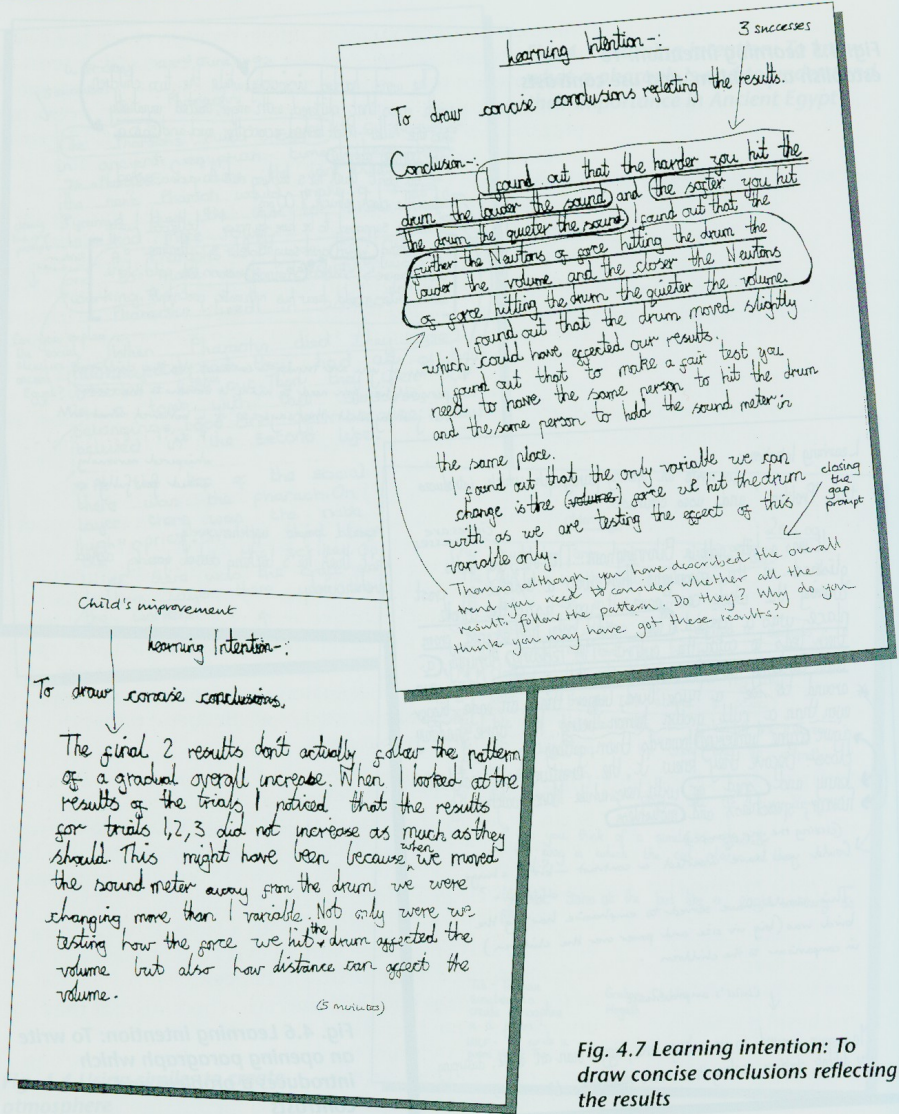 3 successes
Learning Intention-:
To draw concise conclusions reflecting the results.
Conclusion-: I found out that the harder you hit the
drum the louder the sound and the softer you hit
the drum the quieter the sound I found out that the
further the Newtons of force hitting the drum the
louder the volume and the closer the Newtons
of force hitting the drum the quieter the volume.
I found out that the drum moved slightly
which could have effected our results.
I found out that to make a fair test you
need to have the same person to hit the drum
and the same person to hold the sound meter in
the same place.
I found out that the only variable we can
change is the (volume) force we hit the drum
with as we are testing the effect of this
variable only.
closing
the
gap
prompt
Thomas although you have described the overall
trend you need to consider whether all the
results follow the pattern. Do they? Why do you
think you may have got these results?
Child's improvement
Learning Intention-:
To draw concise conclusions.
The final 2 results don't actually follow the pattern
of a gradual overall increase. When I looked at the
results of the trials I noticed that the results
for trials 1,2,3 did not increase as much as they
should. This might have been because when we moved
the sound meter away from the drum we were
changing more than 1 variable. Not only were we
testing how the force we hit the drum affected the
volume but also how distance can affect the
volume.
(5 minutes)
Fig. 4.7 Learning intention: To
draw concise conclusions reflecting
the results